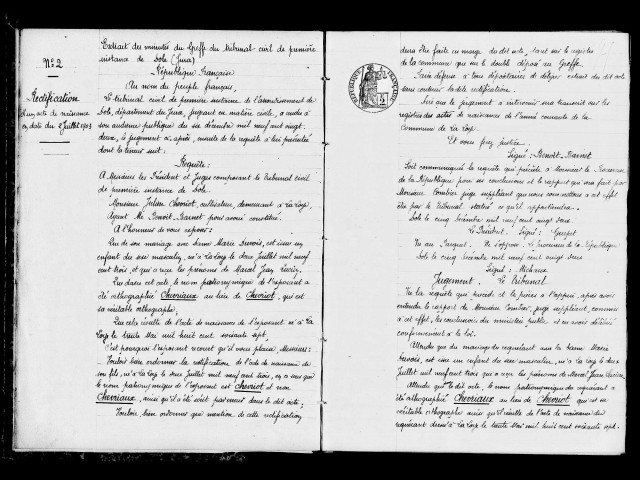 N° 2
Rectification
d'un acte de naissance
en date du 2 Juillet 1903
Extrait des minutes du Greffe du tribunal civil de première
instance de Dole (Jura)
République Française
Au nom du peuple français,
Le tribunal civil de première instance de l'arrondissement de
Dole, département du Jura, jugeant en matière civile, a rendu à
son audience publique du six décembre mil neuf cent vingt
deux, le jugement ci-après, ensuite de la requête à lui présentée
dont la teneur suit.
Requête:
A Messieurs les Président et Juges composant le Tribunal civil
de première instance de Dole.
Monsieur Julien Chevriot, cultivateur, demeurant à La Loye,
Ayant Me Benoit-Barnet pour avoué constitué.
A l'honneur de vous exposer:
Que de son mariage avec dame Marie Survois, est issu un
enfant du sexe masculin, né à La Loye le deux Juillet mil neuf
cent trois, et qui a reçu les prénoms de Marcel Jean Lucien,
Que dans cet acte, le nom patronymique de l'exposant a
été orthographié Chevriaux au lieu de Chevriot, qui est
sa véritable orthographe,
Que cela résulte de l'acte de naissance de l'exposant né à La
Loye le trente Mai mil huit cent soixante sept.
C'est pourquoi l'exposant recourt qu'il vous plaise, Messieurs:
Vouloir bien ordonner la rectification, de l'acte de naissance de
son fils, né à La Loye le deux Juillet mil neuf cent trois, en ce sens que
le nom patronymique de l'exposant est Chevriot et non
Chevriaux, ainsi qu'il a été écrit par erreur dans le dit acte;
Vouloir bien ordonner que mention de cette rectification
devra être faite en marge du dit acte, tant sur le registre
de la commune que sur le double déposé au Greffe.
Faire défense à tous dépositaires de délivrer extrait du dit acte
sans contenir la dite rectification.
Dire que le jugement à intervenir sera transcrit sur les
registres des actes de naissance de l'année courante de la
Commune de La Loye.
Et vous ferez justice.
Signé: Benoit-Barnet
Soit communiquée la requête qui précède à Monsieur le Procureur
de la République pour ses conclusions et le rapport qui sera fait par
Monsieur Combier juge suppléant que nous commettons à cet effet
être par le Tribunal statué ce qu'il appartiendra.
Dole le cinq Décembre mil neuf cent vingt deux
Le Président. Signé:
Vu au Parquet. Ne s'oppose. Le procureur de la République
Dole le cinq décembre mil neuf cent vingt deux
Signé:
Jugement. Le Tribunal
Vu la requête qui précède et les pièces à l'appui, après avoir
entendu le rapport de Monsieur Combier, juge suppléant, commis
à cet effet, les conclusions du ministère public, et en avoir délibéré
conformément à la loi.
Attendu que du mariage du requérant avec la dame Marie
Survois, est issu un enfant du sexe masculin, né à La Loye le deux
Juillet mil neuf cent trois qui a reçu les prénoms de Marcel Jean Lucien,
Attendu que le dit acte, le nom patronymique du requérant a
été orthographié Chevriaux au lieu de Chevriot qui est sa
véritable orthographe ainsi qu'il résulte de l'acte de naissance du
requérant dressé à La Loye le trente Mai mil huit cent soixante sept.